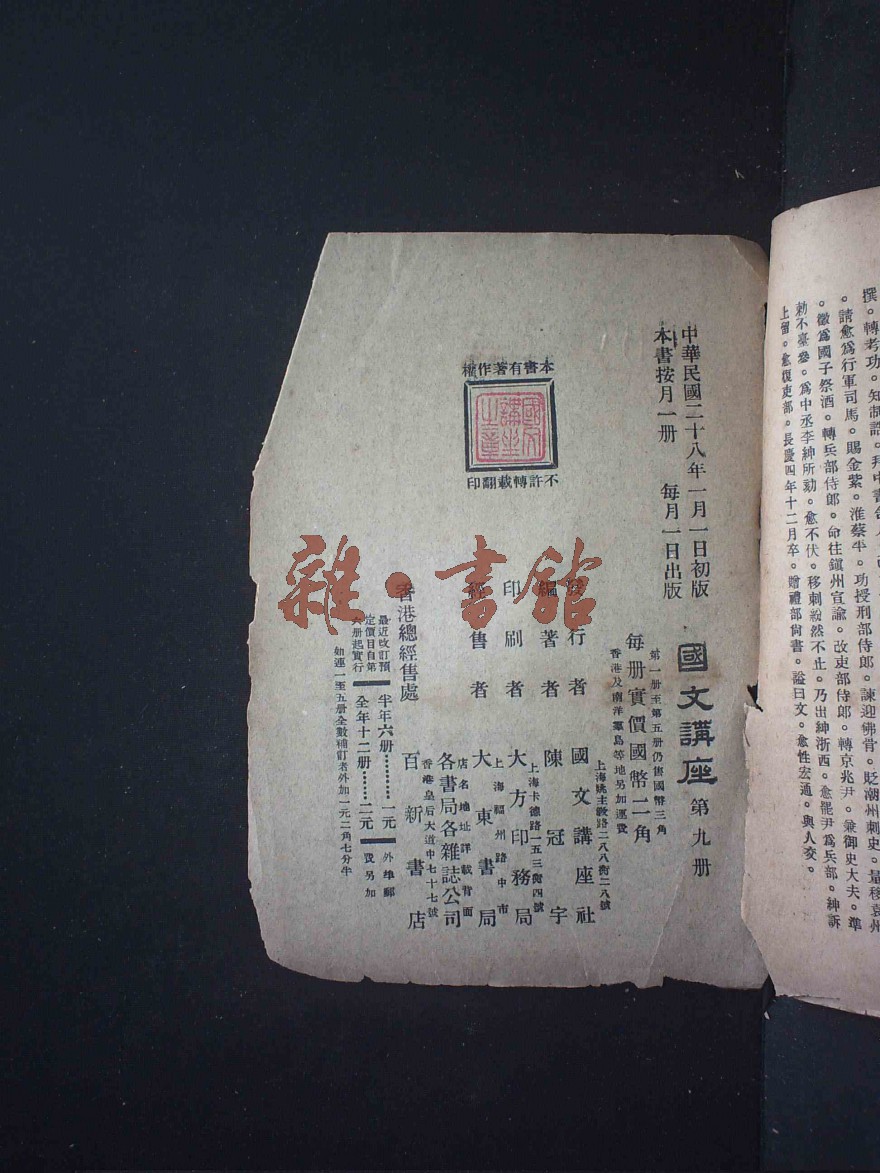 撰。轉考功。知制誥。拜中書舍人。
。請愈爲行軍司馬。賜金紫。淮蔡平。功授刑部侍郎。諫迎佛骨。貶潮州刺史。量移袁州
。徵爲國子祭酒。轉兵部侍郎。命往鎮州宣諭。改吏部侍郎。轉京兆尹。兼御史大夫。準
勅不臺參。爲中丞李紳所劾。愈不伏。移刺紛然不止。乃出紳浙西。愈罷尹爲兵部。紳訴
上留。愈復吏部。長慶四年十二月卒。贈禮部尚書。諡曰文。愈性宏通。與人交。
中華民國二十八年一月一日初版
本書按月一册 每月一日出版
國文講座 第九册
第一册至第五册仍售國幣三角
每册實價國幣二角
香港及南洋羣島等地另加運費
發行者 國文講座社
上海姚主教路二八八街二八號
編著者 陳冠宇
印刷者 大方印務局
上海卡德路一五三街四號
經售者 大東書局
上海福州路中市
各書局各雜誌公司
店名地址詳載背面
香港總經售處 百新書店
香港皇后大道中七十七號
最近改訂預
定價目自第
六册起實行
半年六册………一元
全年十二册……二元
外埠郵
費另加
如連一至五册全數補訂者外加一元二角七分半
本書有著作權
國文
講坐
之章
不許轉載翻印
雜·書館